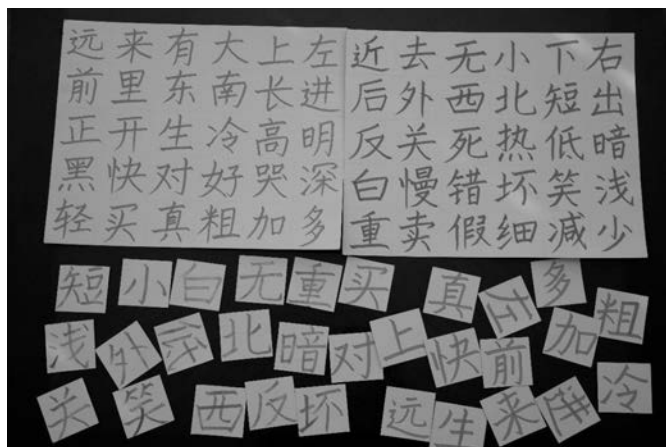 远来有大上左
前里东南长进
正开生冷高明
黑快对好哭深
轻买真粗加多
近去无小下右
后外西北短出
反关死热低暗
白慢错坏笑浅
重卖假细减少
短小白无重买真左多
浅外低北暗对上快前加粗
关笑西反坏远生来进冷